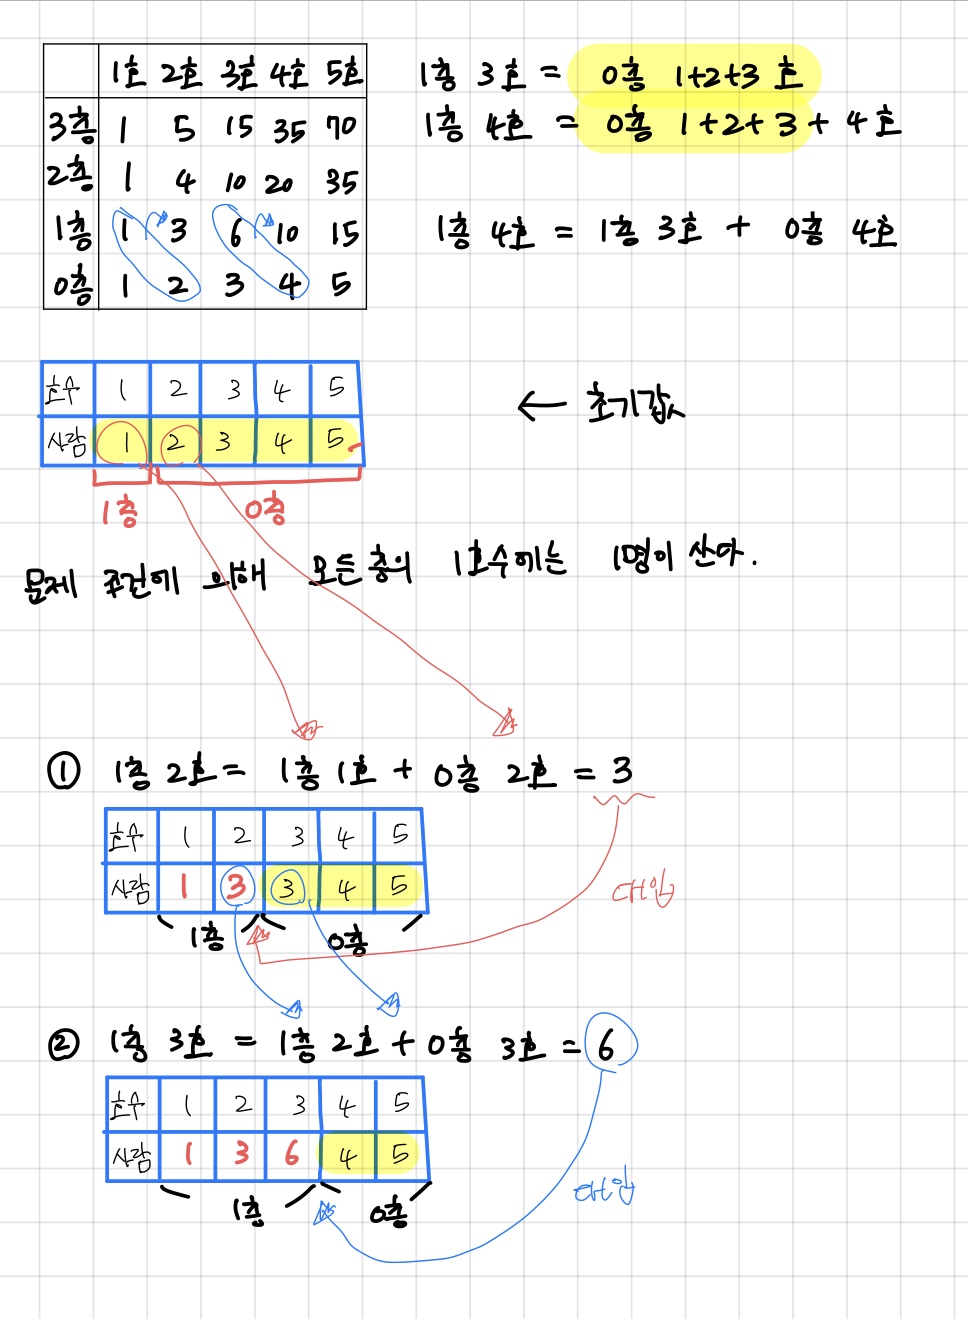 1호 2호 3호 4호 5호
3층 1 5 15 35 70
2층 1 4 10 20 35
1층 1 3 6 10 15
0층 1 2 3 4 5
1층 3호 = 0층 1+2+3 호
1층 4호 = 0층 1+2+3+4호
1층 4호 = 1층 3호 + 0층 4호
호수 1 2 3 4 5
사람 1 2 3 4 5
← 초기값
1층 0층
문제 조건에 의해 모든 층의 1호수에는 1명이 산다.
① 1층 2호 = 1층 1호 + 0층 2호 = 3
호수 1 2 3 4 5
사람 1 3 3 4 5
대입
1층 0층
② 1층 3호 = 1층 2호 + 0층 3호 = 6
호수 1 2 3 4 5
사람 1 3 6 4 5
대입
1층 0층